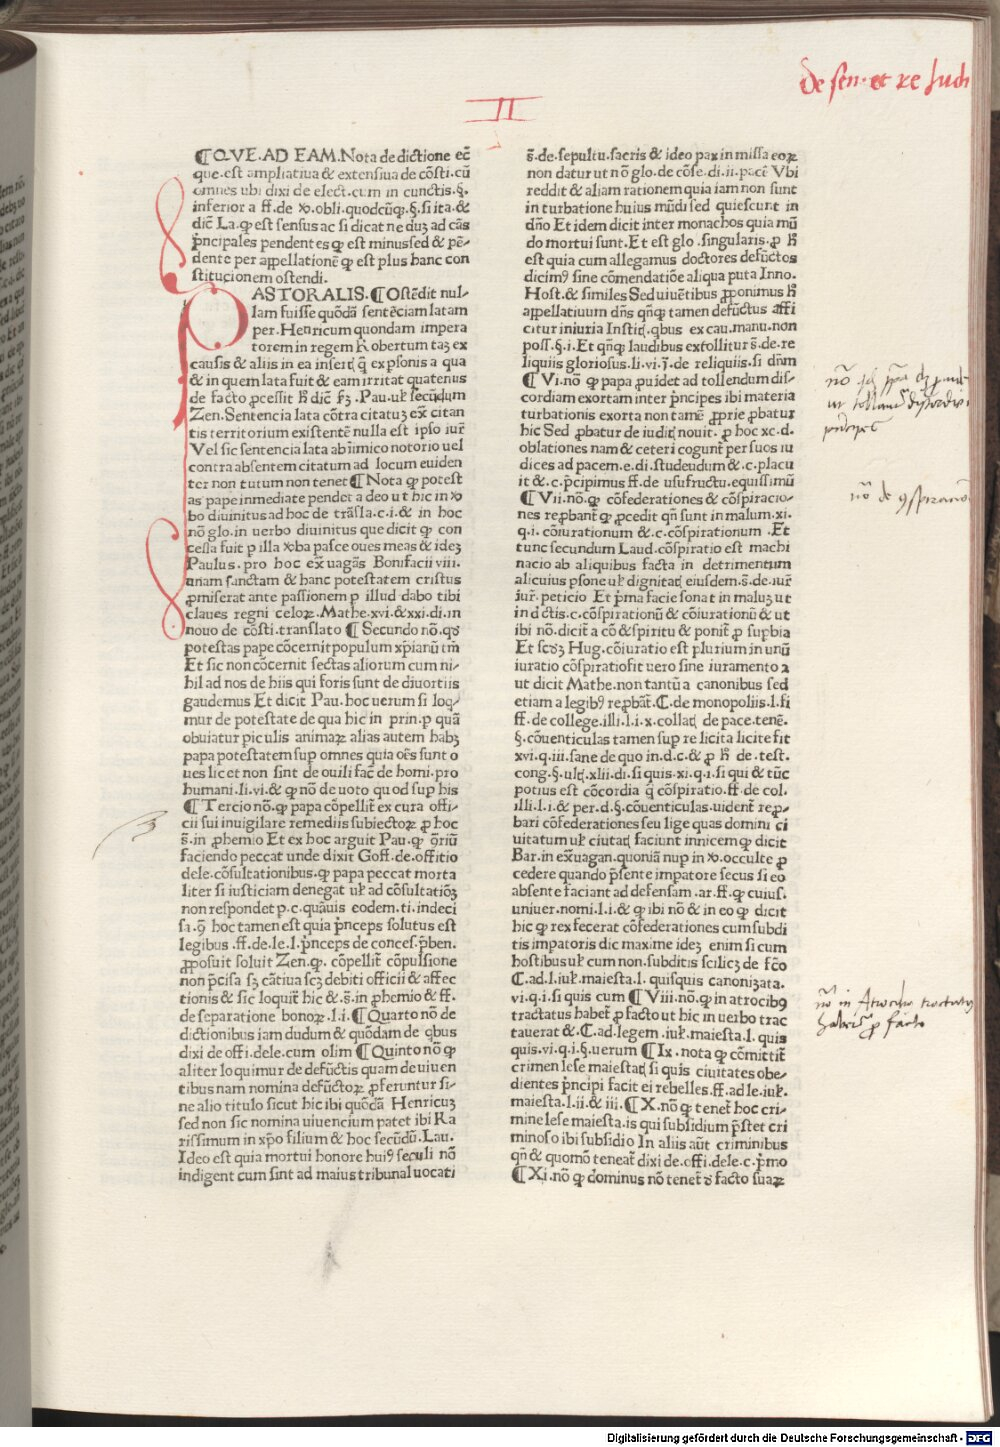 de sen. et re Iudi
II
¶ QVE.AD EAM.Nota de dictione ec̄
que.est ampliatiua & extensiua de cōsti.cū
omnes ubi dixi de elect.cum in cunctis.§.
inferior a ff.de
obli.quodcūqꝫ.§.si ita.&
dic̄ La.qꝫ est sensus ac si dicat ne duꝫ ad cās
p̄ncipales pendentes qꝫ est minus sed & pē⸗
dente per appellationē qꝫ est plus hanc con
stitucionem ostendi.
PASTORALIS.¶ Ostēdit nul⸗
lam fuisse quōdā sentēciam latam
per.Henricum quondam impera
torem in regem Robertum taꝫ ex
causis & aliis in ea insert q̄ ex psonis a qua
& in quem lata fuit & eam irritat quatenus
de facto pcessit
Pau.uł secūdum
Zen.Sentencia lata cōtra citatuꝫ ex̄ citan
tis territorium existentē nulla est ipso iur̄
Vel sic sentencia lata ab īimico notorio uel
contra absentem citatum ad locum euiden
ter non tutum non tenet ¶ Nota qꝫ potest
as pape inmediate pendet a deo ut hic in
bo diuinitus ad hoc de trāsla.c.i.& in hoc
nō glo.in uerbo diuinitus que dicit qꝫ con
cessa fuit p illa
ba pasce oues meas & ideꝫ
Paulus.pro hoc ex̄ uagās Bonifacii viii.
unam sanctam & hanc potestatem cristus
pmiserat ante passionem p illud dabo tibi
claues regni celoꝝ.Mathe.xvi.&xxi.di.in
nouo de cōsti.translato ¶ Secundo nō.
potestas pape cōcernit populum xp̄ianū tm̄
Et sic non cōcernit sectas aliorum cum ni⸗
hil ad nos de hiis qui foris sunt de diuortiis
gaudemus Et dicit Pau.hoc uerum si loq⸗
mur de potestate de qua hic in prin.p quā
obuiatur piculis animaꝝ alias autem habꝫ
papa potestatem sup omnes quia oēs sunt o
ues licet non sint de ouili fac̄ de homi.pro
humani.li.vi.& qꝫ nō de uoto quod sup his
¶ Tercio nō.qꝫ papa cōpellit̄ ex cura offi⸗
cii sui inuigilare remediis subiectoꝝ ꝓ hoc
s̄.in ꝓhemio Et ex hoc arguit Pau.qꝫ
faciendo peccat unde dixit Goff.de offitio
dele.cōsultationibus.qꝫ papa peccat morta
liter si iusticiam denegat uł ad cōsultatiōꝫ
non respondet p.c.quāuis eodem.ti.indeci
sa.
hoc tamen est quia p̄nceps solutus est
legibus .ff.de le.l.p̄nceps de conces.p̄ben.
ꝓposuit soluit Zen.qꝫ.cōpellit̄ cōpulsione
non p̄cisa sꝫ cātiua scꝫ debiti officii & affec
tionis & sic loquit̄ hic & s̄.in ꝓhemio & ff.
de separatione bonoꝝ.l.i.¶ Quarto nō de
dictionibus iam dudum & quōdam de qbus
dixi de offi.dele.cum olim ¶ Quinto nō qꝫ
aliter loquimur de defūctis quam de uiuen
tibus nam nomina defūctoꝝ ꝓferuntur si⸗
ne alio titulo sicut hic ibi quōdā Henricuꝫ
sed non sic nomina uiuencium patet ibi Ka
rissimum in xp̄o filium & hoc secūdū.Lau.
Ideo est quia mortui honore huiꝰ seculi nō
indigent cum sint ad maius tribunal uocati
s̄.de.sepultu.sacris & ideo pax in missa eoꝝ
non datur ut nō glo.de cōse.di.ii.pacē Vbi
reddit & aliam rationem quia iam non sunt
in turbatione huius mūdi sed quiescunt in
dn̄o Et idem dicit inter monachos quia mū
do mortui sunt.Et est glo .singularis.ꝓ
est quia cum allegamus doctores defūctos
dicimꝰ sine cōmendatiōe aliqua puta Inno.
Host.& similes Sed uiuētibus ꝓponimus
appellatiuum dn̄s qn̄qꝫ tamen defūctus affi
citur iniuria Instit.qbus ex cau.manu.non
poss.§.i.Et qn̄qꝫ laudibus extollitur s̄.de.re
liquiis gloriosus.li.vi.
de reliquiis.si dn̄m
¶ Vi.nō.qꝫ papa puidet ad tollendum dis⸗
cordiam exortam inter p̄ncipes ibi materia
turbationis exorta non tamē ꝓprie ꝓbatur
hic Sed ꝓbatur de iudic̄ nouit.ꝓ hoc xc.d.
oblationes nam & ceteri cogunt̄ per suos iu
dices ad pacem.e.di.studeudum &.c.placu
it &.c.p̄cipimus ff.de usufructu.equissimū
¶ Vii.nō.qꝫ cōfederationes & cōspiracio⸗
nes reꝓbant̄ qꝫ pcedit qn̄ sunt in malum.xi.
q.i.cōiurationum &.c.cōspirationum .Et
tunc secundum Laud.cōspiratio est machi
nacio ab aliquibus facta in detrimentum
alicuius psone uł dignitat eiusdem.s̄.de.iur̄
iur̄.peticio Et p̄ma facie sonat in maluꝫ ut
in dictis.c.cōspirationū & cōiurationū & ut
ibi nō.dicit̄ a cō & spiritu & ponit̄ ꝓ supbia
Hug.cōiuratio est plurium in unū
iuratio cōspiratiofit uero sine iuramento
ut dicit Mathe.non tantū a canonibus sed
etiam a legibꝰ reꝓbāt.C.de monopoliis.l.fi
ff.de college.illi.l.i.x.collat de pace.tenē.
§.cōuenticulas tamen sup re licita licite fit
xvi.q.iii.sane de quo in.d.c.& ꝓ
de.test.
cong.§.ult.xlii.di.si quis.xi.q.i.si qui & tūc
potius est cōcordia q̄ cōspiratio.ff.de col.
illi.l.i.& per.d.§.cōuenticulas.uident̄ reꝓ⸗
bari cōfederationes seu lige quas domini ci
uitatum uł ciuitat faciunt innicem qꝫ dicit
Bar.in ex̄uagan.quoniā nup in
occulte ꝓ
cedere quando p̄sente impatore secus si eo
absente faciant ad defensam.ar.ff.qꝫ cuius.
uniuer.nomi.l.i.& qꝫ ibi nō & in eo qꝫ dicit
hic qꝫ rex fecerat cōfederationes cum subdi
tis impatoris dic maxime ideꝫ enim si cum
hostibus uł cum non.subditis scilicꝫ de fc̄o
C.ad.l.iuł.maiesta.l.quisquis canonizata.
vi.q.i.si quis cum ¶ Viii.nō.qꝫ in atrocibꝰ
tractatus habet̄ ꝓ facto ut hic in uerbo trac
tauerat &.C.ad.legem.iuł.maiesta.l.quis
quis.vi.q.i.§.uerum ¶ Ix.nota qꝫ cōmittit̄
crimen lese maiestat si quis ciuitates obe⸗
dientes p̄ncipi facit ei rebelles.ff.ad le.iuł.
maiesta.l.ii.& iii.¶ X.nō.qꝫ tenet̄ hoc cri⸗
mine lese maiesta.is qui subsidium p̄stet cri
minoso ibi subsidio In aliis aūt criminibus
qn̄ & quomō teneat̄ dixi de.offi.dele.c.p̄mo
¶ Xi.nō qꝫ dominus nō tenet̄ facto suaꝝ
Digitalisierung gefördert durch die Deutsche Forschungsgemeinschaft - DFG